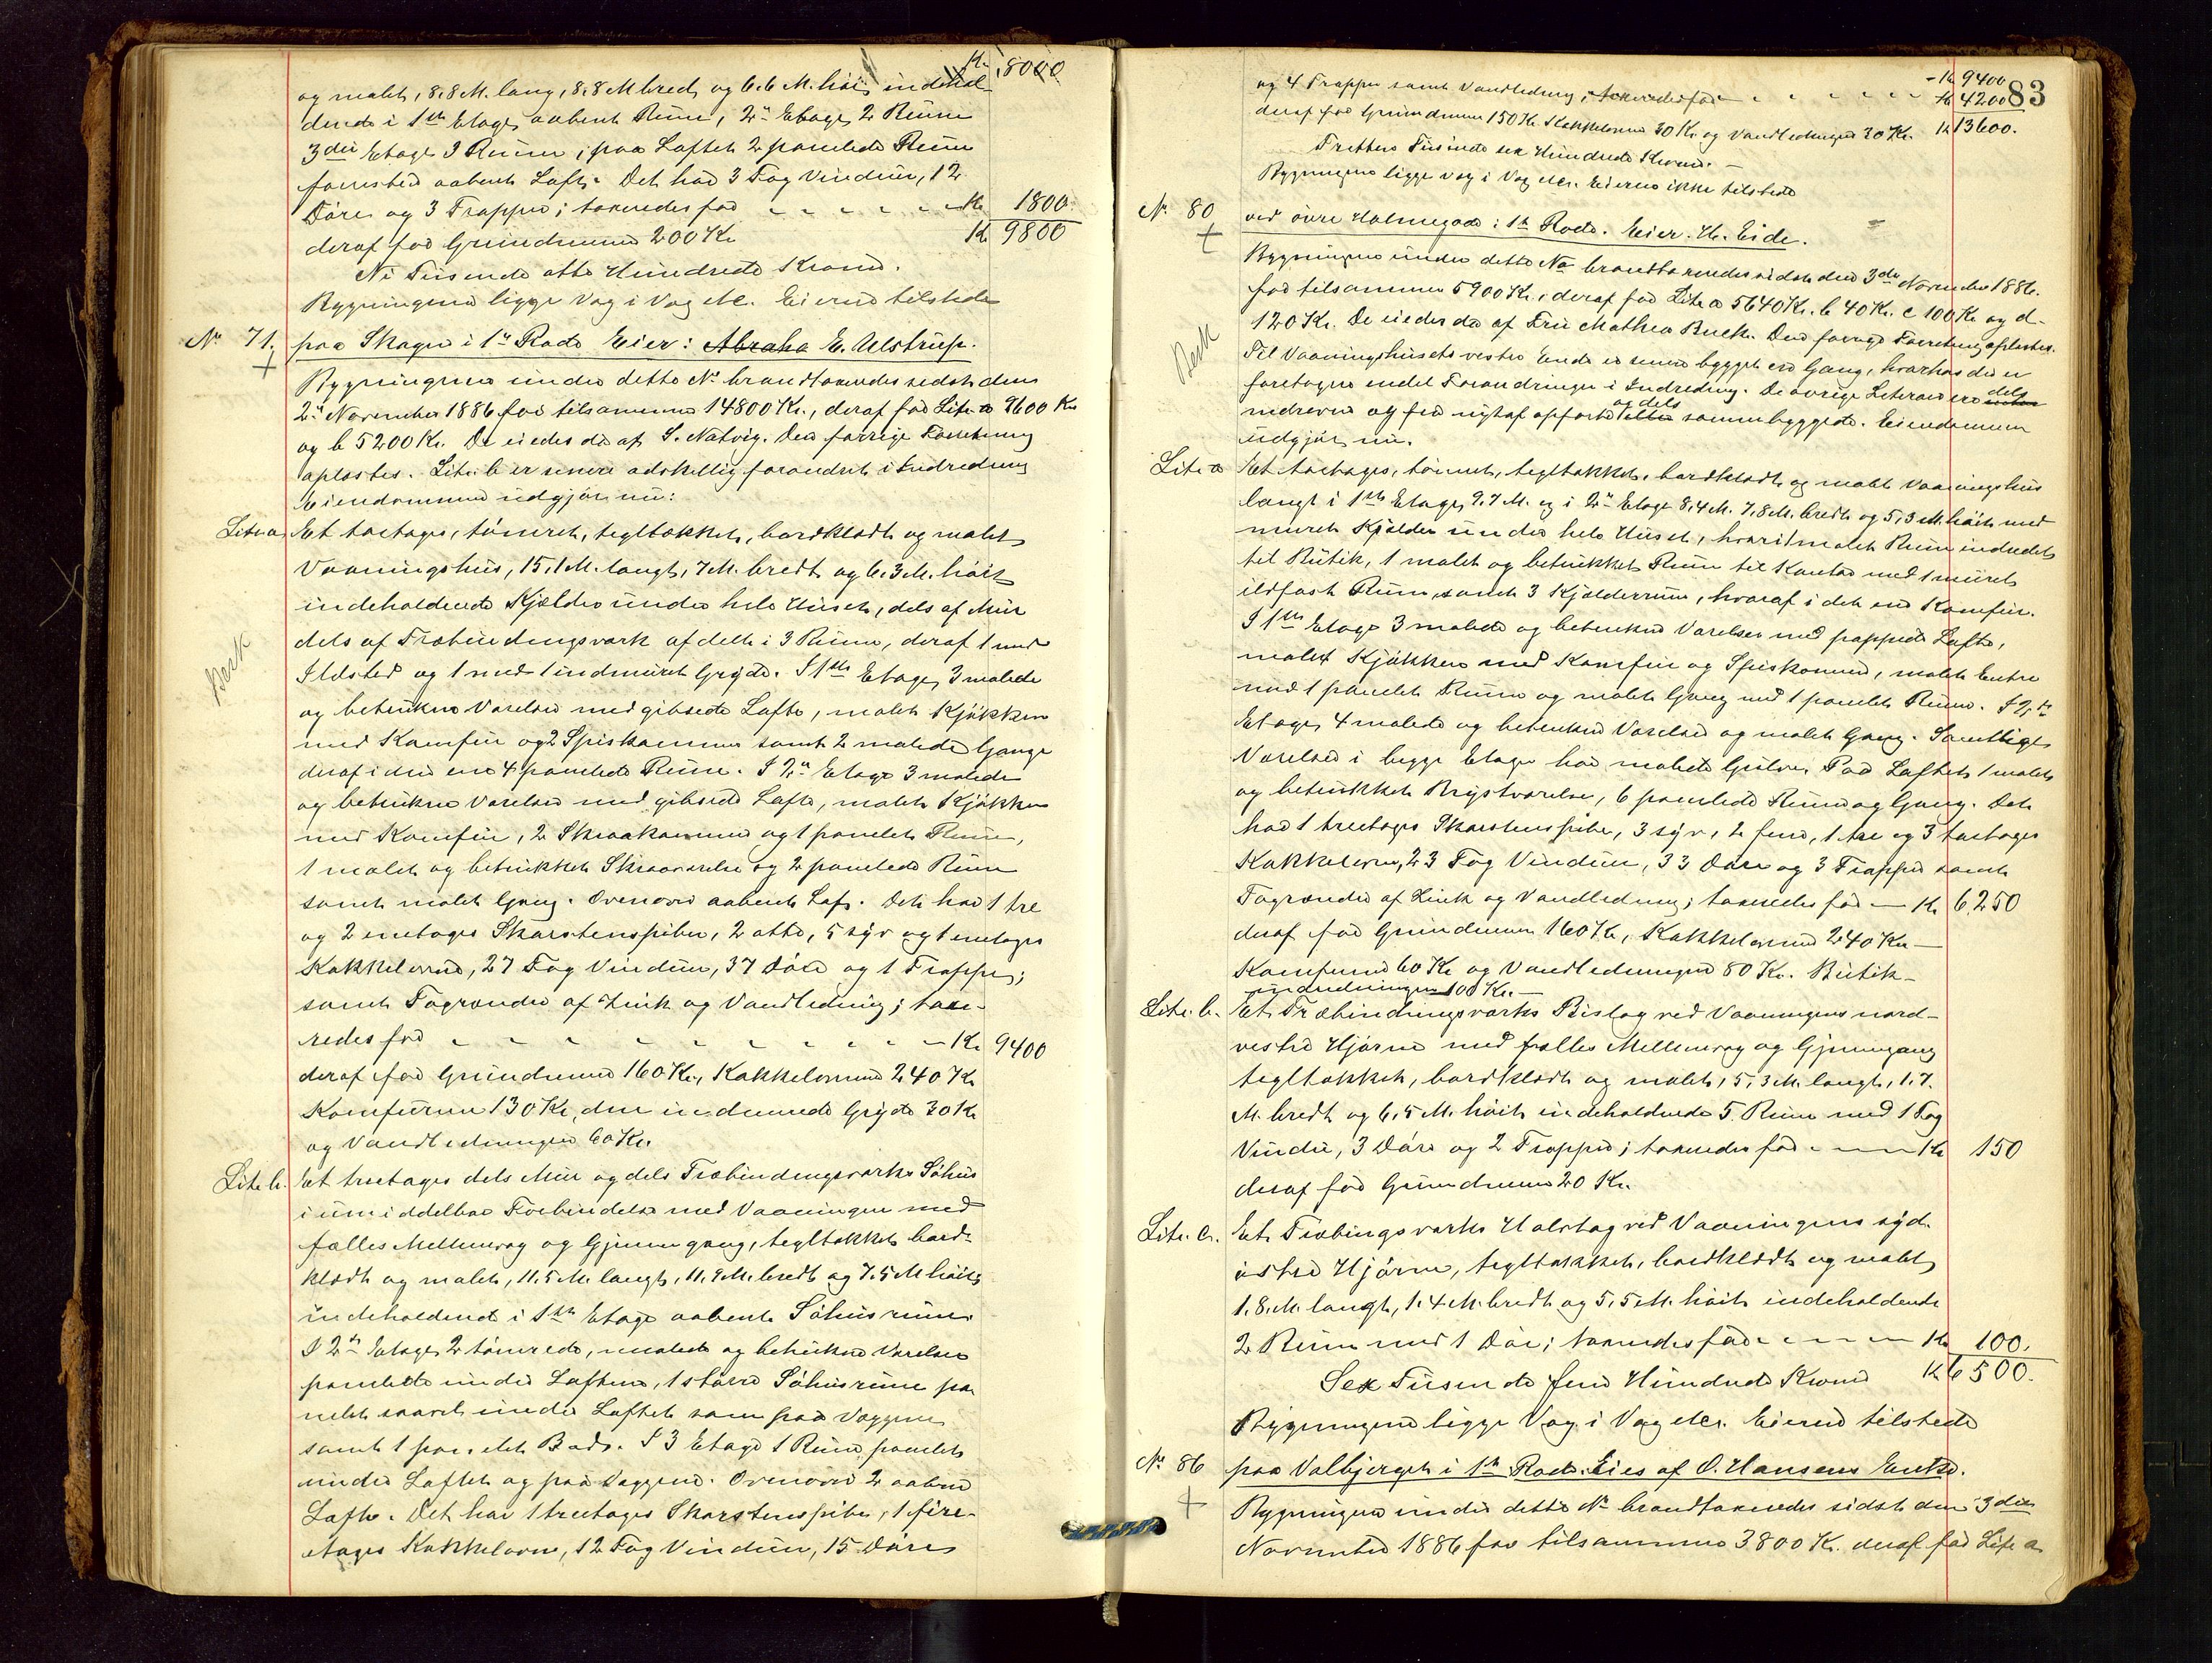 Kr. 8000
og malet, 8.8 M. lang, 8.8 M bred og 6.6 M. høi, indehol-
dende i 1ste Etage aabent Rum, 2den Etage 2 Rum
3die Etage 3 Rum, paa Loftet 2 panelede Rum
forresten aabent Loft. Det har 3 Fag Vinduer, 12
Døre og 3 Trapper; taxeredes for - - - - - - Kr. 1800
deraf for Grundmuren 200 Kr. Kr. 9800
Ni Tusende otte Hundrede Kroner.
Bygningerne ligge Væg i Væg etc. Eieren tilstede
No 71. paa Skagen i 1ste Rode Eier: Abraha E. Ulstrup.
Bygningerne under dette No brandtaxeredes sidst den
2den November 1886 for tilsammen 14800 Kr., deraf for Litr. a 9600 Kr
og b 5200 Kr. De eiedes da af S. Natvig. Den forrige Forretning
oplæstes. Litr. b er senere adskillig forandret i Indredning
Eiendommen udgjør nu:
Litr. a. Et toetages, tømret, tegltækket, bordklædt og malet
Vaaningshus, 15,1 M. langt, 7 M. bredt og 6.3 M. høit
indeholdende Kjælder under hele Huset, dels af Mur
dels af Træbindingsværk afdelt i 3 Rum, deraf 1 med
Ildsted og 1 med 1 indmuret Gryde. I 1ste Etage, 3 malede
og betrukne Værelser med gibsede Lofte, malet Kjøkken
med Komfur og 2 Spiskammer samt 2 malede Gange
deraf i den ene 4 panelede Rum. I 2den Etage 3 malede
og betrukne Værelser med gibsede Lofte, malet Kjøkken
med Komfur, 2 Skraakammer og 1 panelet Rum,
1 malet og betrukket Skraaværelse og 2 panelede Rum
samt malet Gang. Ovenover aabent Loft. Det har 1 tre
og 2 enetages Skorstenspiber, 2 otte, 5 syv og 1 enetages
Kakkelovne, 27 Fag Vinduer, 37 Døre og 1 Trappe;
samt Tagrender af Zink og Vandledning; taxe-
redes for - - - - - - - - - - Kr. 9400
deraf for Grundmuren 160 Kr., Kakkelovnene 240 Kr
Komfurerne 130 Kr, den indmurede Gryde 30 Kr
og Vandledningen 60 Kr.
Litr. b. Et treetages dels Mur og dels Træbindingsværks Søhus
i umiddelbar Forbindelse med Vaaningen med
fælles Mellemvæg og Gjennemgang, tegltækket, bord-
klædt og malet, 11.5 M. langt, 11.9 M. bredt og 7.5 M høit
indeholdende i 1ste Etage aabent Søhusrum.
I 2den Etage, 2 tømrede, malede og betrukne Værelser
panelede under Loftene, 1 større Søhusrum pa-
nelet saavel under Loftet som paa Væggene
samt 1 panelet Bod. I 3 Etage 1 Rum panelet
under Loftet og paa Væggene. Ovenover 2 aabne
Lofte. Det har 1 treetages Skorstenspibe, 1 fire-
etages Kakkelovn, 12 Fag Vinduer, 15 Døre
Besk
83
- Kr. 9400
og 4 Trapper samt Vandledning; taxeredes for - - - - - - Kr 4200
deraf for Grundmuren 150 Kr. Kakkelovnen 30 Kr. og Vandledningen 30 Kr. Kr 13600.
Tretten Tusinde sex Hundrede Kroner. -
Bygningerne ligge Væg i Væg etc. Eieren ikke tilstede
No 80 ved øvre Holmegade i 1ste Rode. Eier. H. Eide.
Bygningerne under dette No brandtaxeredes sidst den 3die November 1886.
for tilsammen 5900 Kr., deraf for Litr a 5640 Kr. b 40 Kr. c 100 Kr og d
120 Kr. De eiedes da af Fru Mathea Buch. Den forrige Forretning oplæstes.
Til Vaaningshusets vestre Ende er senere bygget en Gang, hvorhos der er
foretagen endel Forandringer i Indredning. De øvrige Literaer ere dels
nedrevne og fra nyt af opførte og dels sammenbyggede. Eiendommen
udgjør nu.
Litr a Et toetages, tømret, tegltækket, bordklædt og malet Vaaningshus
langt i 1ste Etage, 9.7 M. og i 2den Etage 8,4 M. 7,8 M. bredt og 5,3 M. høit med
muret Kjælder under hele Huset, hvori 1 malet Rum indredet
til Butik, 1 malet og betrukket Rum til Kontor med 1 muret
ildfast Rum, samt 3 Kjælderrum, hvoraf i det ene Komfur.
I 1ste Etage 3 malede og betrukne Værelser med pappede Lofte,
malet Kjøkken med Komfur og Spiskammer, malet Entre
med 1 panelet Rum og malet Gang med 1 panelet Rum. I 2den
Etage, 4 malede og betrukne Værelser og malet Gang. Samtlige
Værelser i begge Etager har malede Gulve. Paa Loftet 1 malet
og betrukket Kvistværelse, 6 panelede Rum og Gang. Det
har 1 treetages Skorstenspibe, 3 syv, 2 fem, 1 tre og 3 toetages
Kakkelovne, 23 Fag Vinduer, 33 Døre og 3 Trapper samt
Tagrender af Zink og Vandledning; taxeredes for — Kr 6250
deraf for Grundmuren 160 Kr, Kakkelovnene 240 Kr —
Komfurene 60 Kr og Vandledningen 80 Kr. Butik-
indredningen 100 Kr. —
Litr. b. Et Træbindingsværks Bislag ved Vaaningens nord-
vestre Hjørne med fælles Mellemvæg og Gjennemgang
tegltækket, bordklædt og malet, 5,3 M. langt, 1.7.
M. bredt og 6,5 M. høit indeholdende 5 Rum med 1 Fag
Vindu, 3 Døre og 2 Trapper; taxeredes for - - - - Kr 150
deraf for Grundmuren 20 Kr.
Litr. c. Et Træbingsværks Halvtag ved Vaaningens syd-
østre Hjørne, tegltækket, bordklædt og malet,
1.8. M. langt, 1.4 M. bredt og 5,5 M. høit indeholdende
2 Rum med 1 Dør; taxeredes for - - - - - Kr 100.
Sex Tusende fem Hundrede Kroner Kr 6500.
Bygningerne ligge Væg i Væg etc. Eieren tilstede
No 86 paa Valbjerget i 1ste Rode. Eies af O. Hansens Enke.
Bygningerne under dette No brandtaxeredes sidst den 3die
November 1886 for tilsammen 3800 Kr. deraf for Litr a
Besk